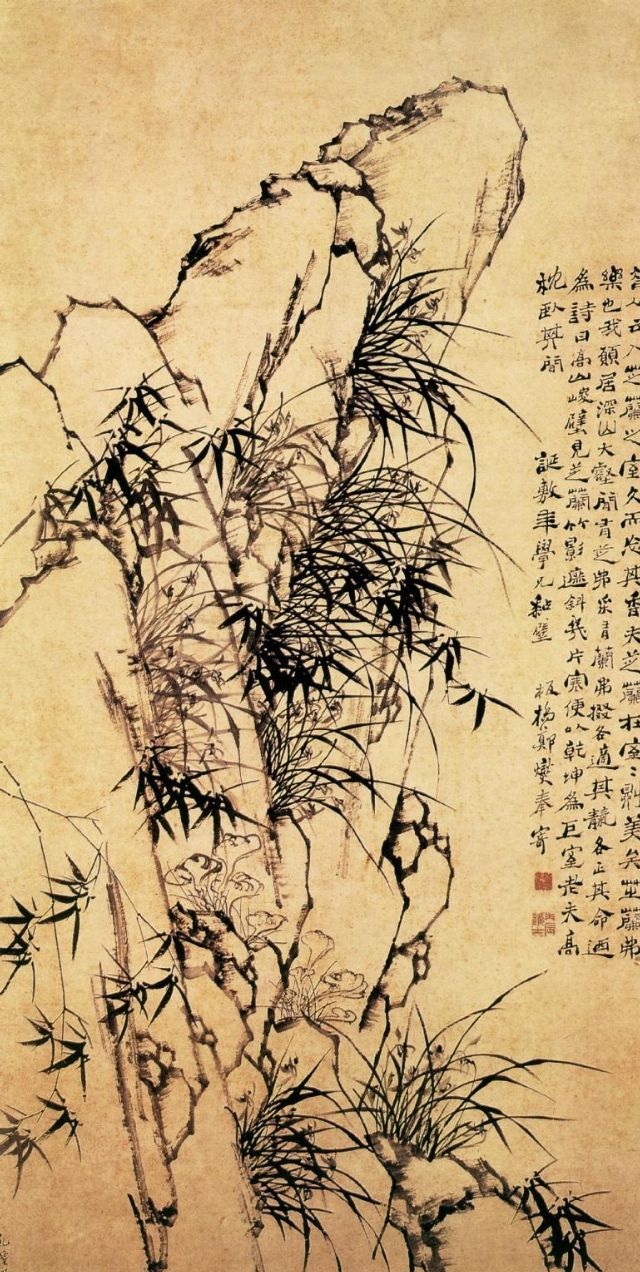 昔人云入芝蘭之室久而忘其香夫芝蘭在室〻則美矣芝蘭弗
樂也我願居深山大壑間有芝弗采有蘭弗掇各適其靝各正其命迺
為詩曰高山峻壁見芝蘭竹影遮斜幾片寒便以乾坤為巨室老夫高
枕臥其間 誕敷年學兄 板橋鄭燮奉寄